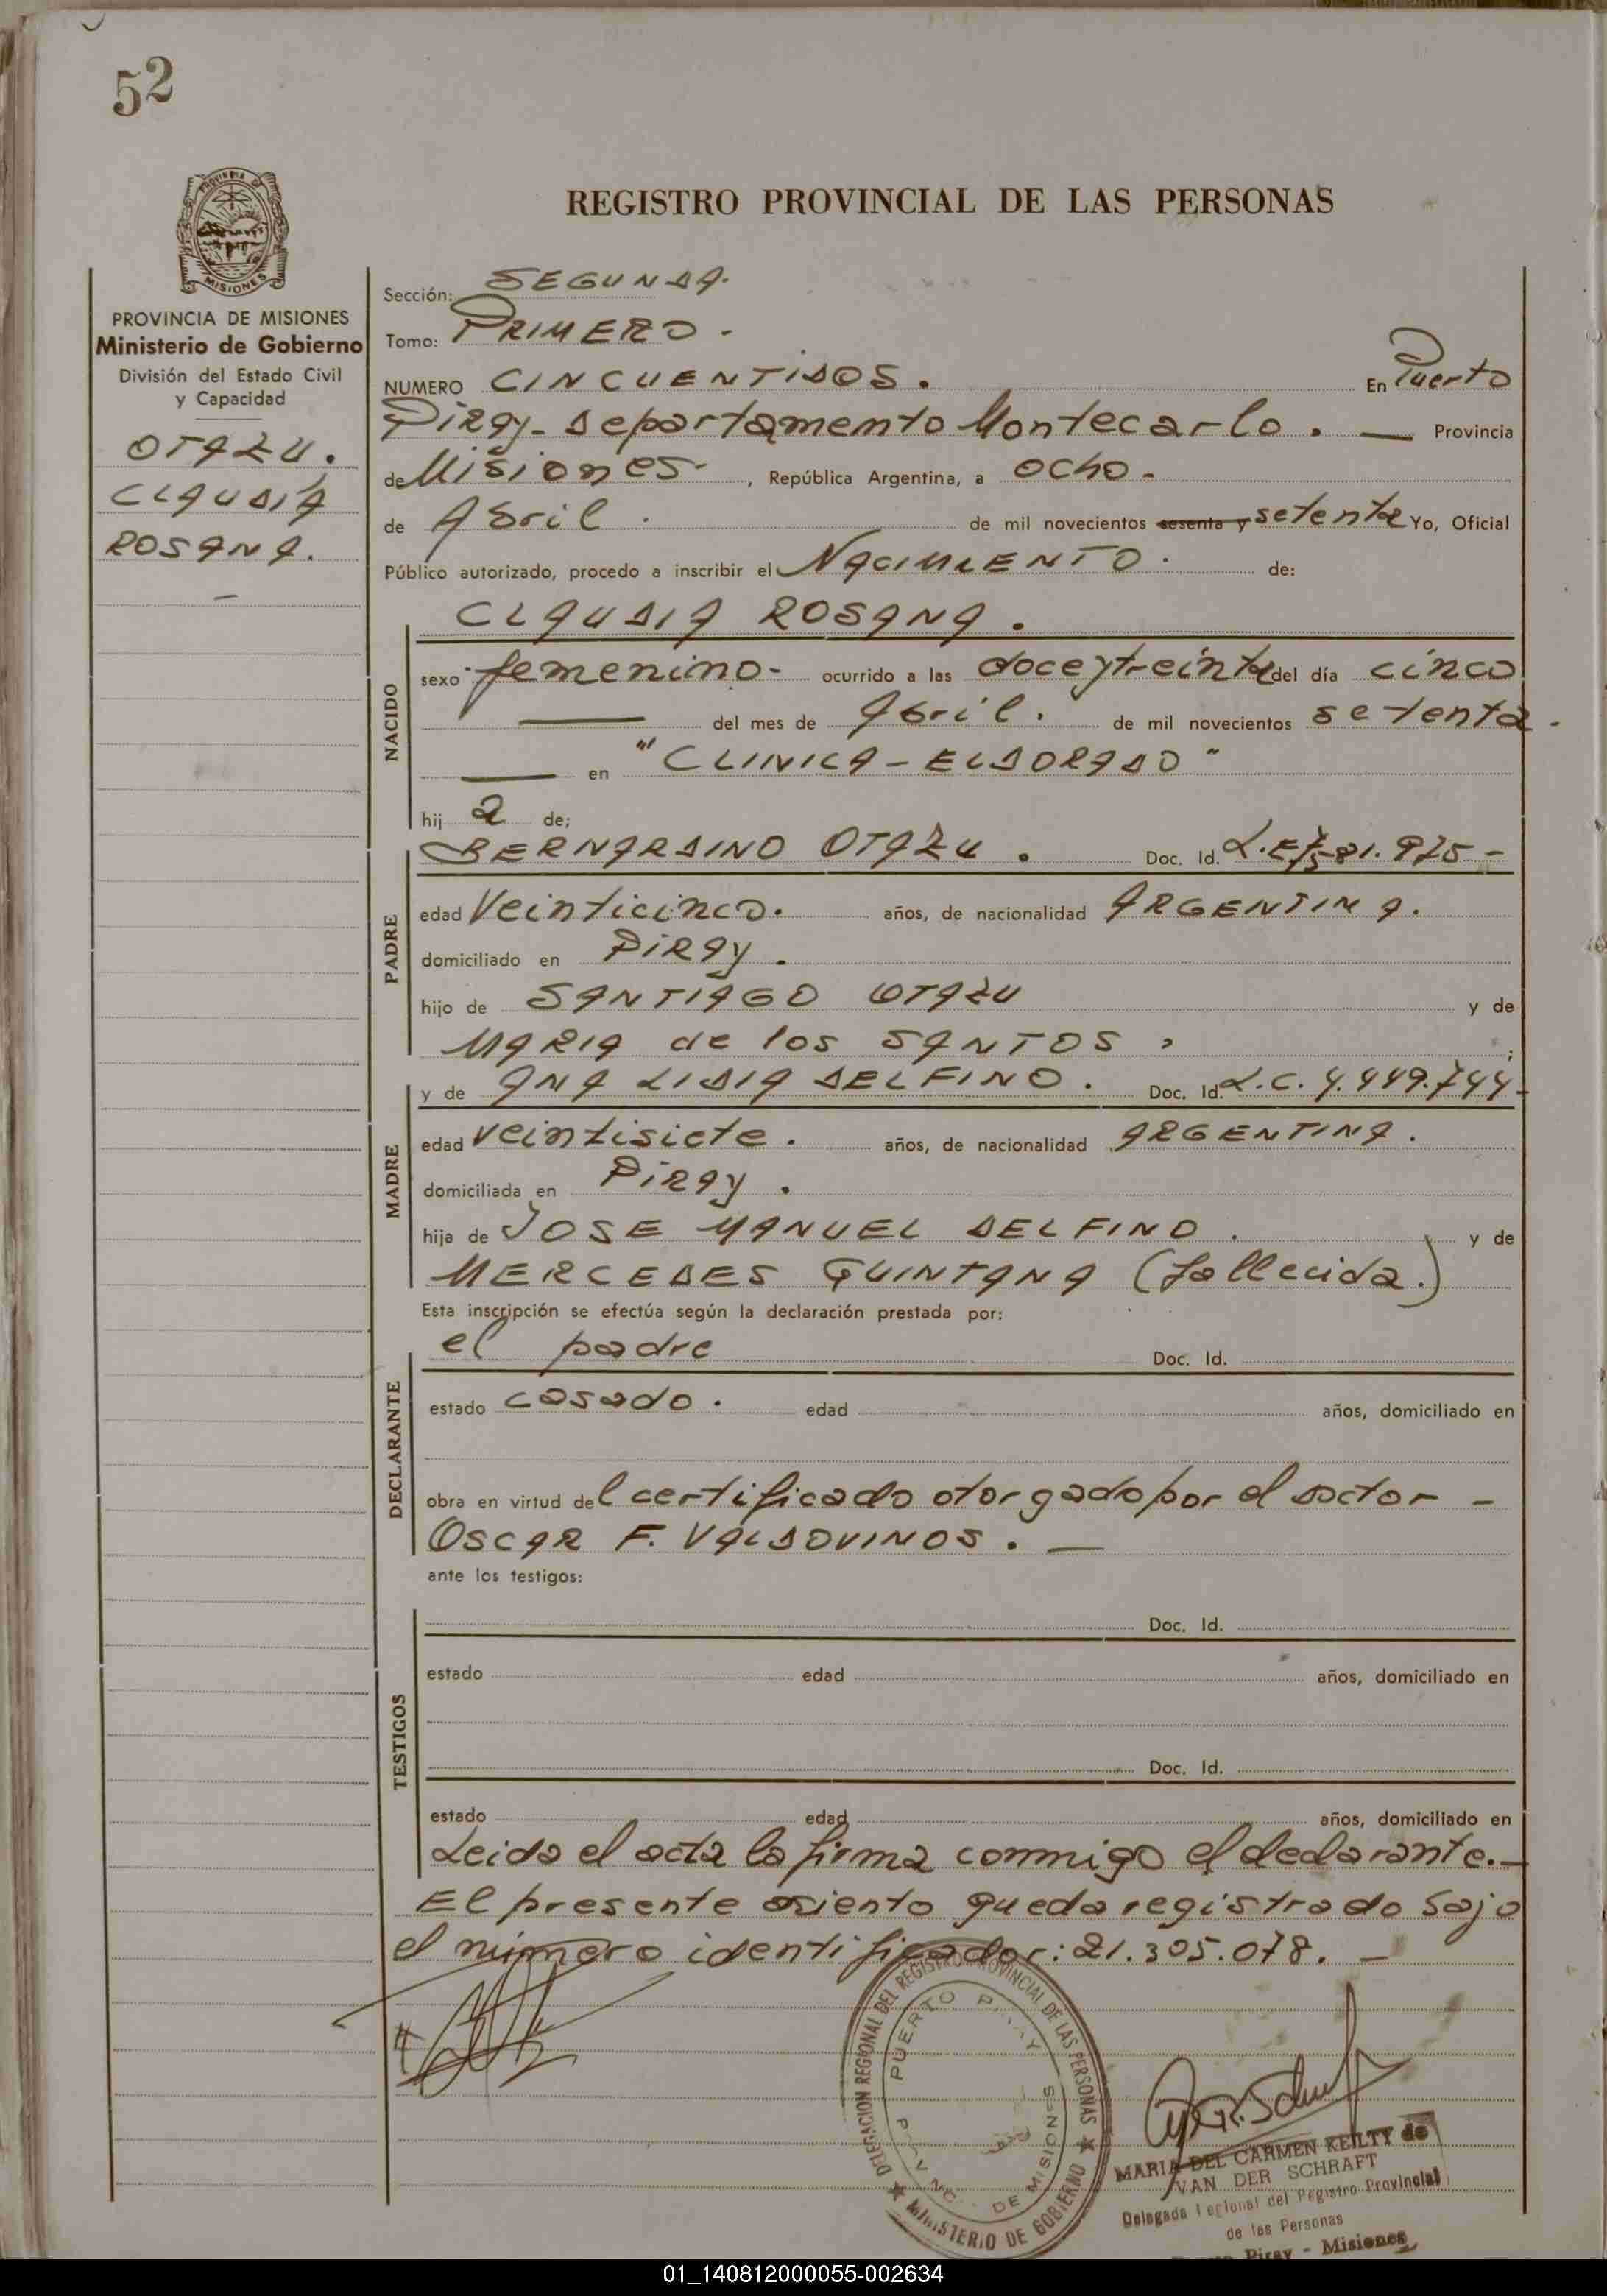 52
PROVINCIA DE
MISIONES
REGISTRO PROVINCIAL DE LAS PERSONAS
PROVINCIA DE MISIONES
Ministerio de Gobierno
División del Estado Civil
y Capacidad
OTAZU.
CLAUDIA
ROSANA.
Sección: SEGUNDA.
Tomo: PRIMERO.
NUMERO CINCUENTIDOS. En Puerto
Piray - Departamento Montecarlo. — Provincia
de Misiones - , República Argentina, a OCHO.-
de Abril. de mil novecientos sesenta y setenta Yo, Oficial
Público autorizado, procedo a inscribir el NACIMIENTO. de:
CLAUDIA ROSANA.
NACIDO
sexo femenino- ocurrido a las doce y treinta del día cinco
— del mes de Abril. de mil novecientos setenta.
— en "CLINICA - ELDORADO"
hij a de;
BERNARDINO OTAZU. Doc. Id. L.E. 7.581.975 -
PADRE
edad Veinticinco. años, de nacionalidad ARGENTINA.
domiciliado en PIRAY.
hijo de SANTIAGO OTAZU y de
MARIA de los SANTOS, ;
y de ANA LIDIA DELFINO. Doc. Id. L.C. 4.449.744-
MADRE
edad veintisiete. años, de nacionalidad ARGENTINA.
domiciliada en PIRAY.
hija de JOSE MANUEL DELFINO. y de
MERCEDES QUINTANA (fallecida.)
Esta inscripción se efectúa según la declaración prestada por:
el padre Doc. Id.
DECLARANTE
estado casado. edad años, domiciliado en
obra en virtud del certificado otorgado por el doctor -
OSCAR F. VALDOVINOS. —
ante los testigos:
Doc. Id.
TESTIGOS
estado edad años, domiciliado en
Doc. Id.
estado edad años, domiciliado en
Leida el acta la firma conmigo el declarante.-
El presente asiento queda registrado bajo
el número identificador: 21.305.078. -
DELEGACION REGIONAL DEL REGISTRO PROVINCIAL DE LAS PERSONAS
PUERTO PIRAY
DE MISIONES
MINISTERIO DE GOBIERNO
MARIA DEL CARMEN KEILTY de
VAN DER SCHRAFT
Delegada Regional del Registro Provincial
de las Personas
Piray - Misiones
01_140812000055-002634